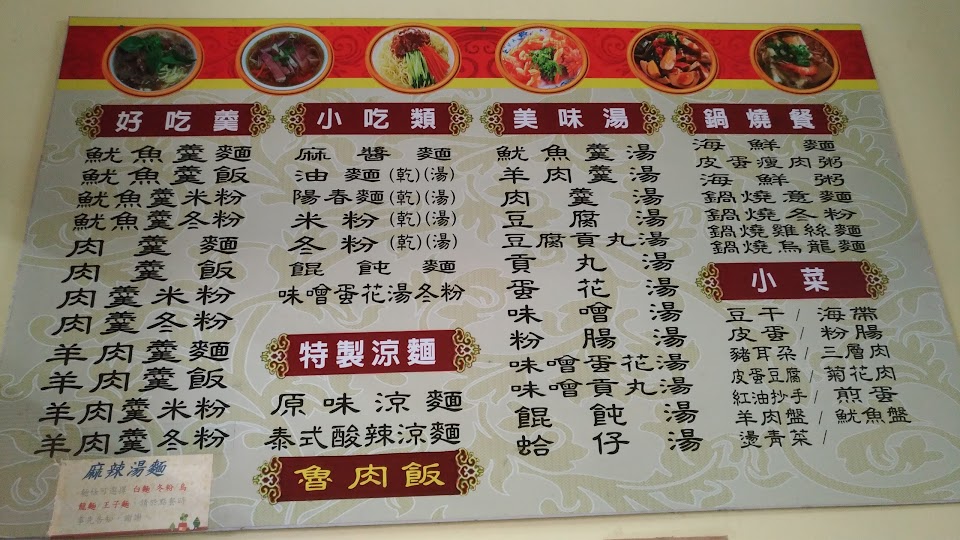 好吃羹
魷魚羹麵
魷魚羹飯
魷魚羹米粉
魷魚羹冬粉
肉羹麵
肉羹飯
肉羹米粉
肉羹冬粉
羊肉羹麵
羊肉羹飯
羊肉羹米粉
羊肉羹冬粉
麻辣湯麵
白麵 冬粉 烏
龍麵 王子麵
小吃類
麻醬麵
油麵(乾)(湯)
陽春麵(乾)(湯)
米粉(乾)(湯)
冬粉(乾)(湯)
餛飩麵
味噌蛋花湯冬粉
特製涼麵
原味涼麵
泰式酸辣涼麵
魯肉飯
美味湯
魷魚羹湯
羊肉羹湯
肉羹湯
豆腐湯
豆腐貢丸湯
貢丸湯
蛋花湯
味噌湯
粉腸湯
味噌蛋花湯
味噌貢丸湯
餛飩湯
蛤仔湯
鍋燒餐
海鮮麵
皮蛋瘦肉粥
海鮮粥
鍋燒意麵
鍋燒冬粉
鍋燒雞絲麵
鍋燒烏龍麵
小菜
豆干/海帶
皮蛋/粉腸
豬耳朶/三層肉
皮蛋豆腐/菊花肉
紅油抄手/煎蛋
羊肉盤/魷魚盤
燙青菜/